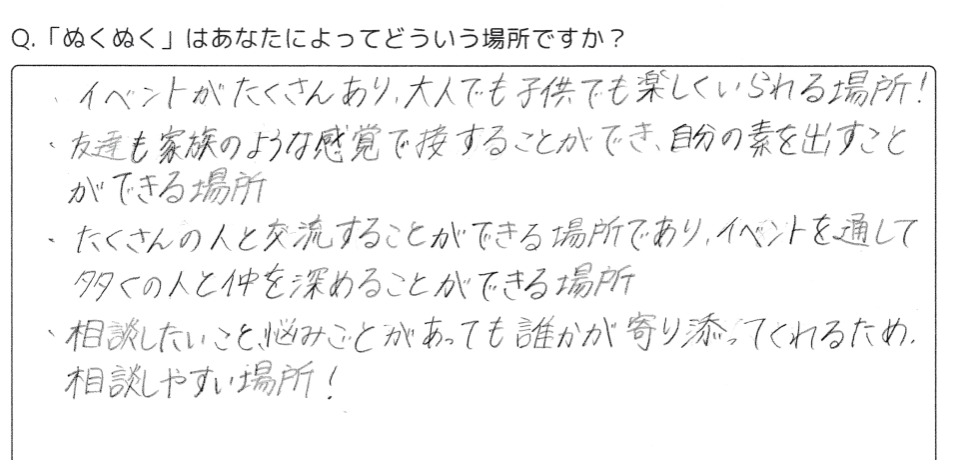 Q.「ぬくぬく」はあなたによってどういう場所ですか？
・イベントがたくさんあり、大人でも子供でも楽しくいられる場所！
・友達も家族のような感覚で接することができ、自分の素を出すこと
ができる場所
・たくさんの人と交流することができる場所であり、イベントを通して
多くの人と仲を深めることができる場所
・相談したいこと、悩みごとがあっても誰かが寄り添ってくれるため、
相談しやすい場所！